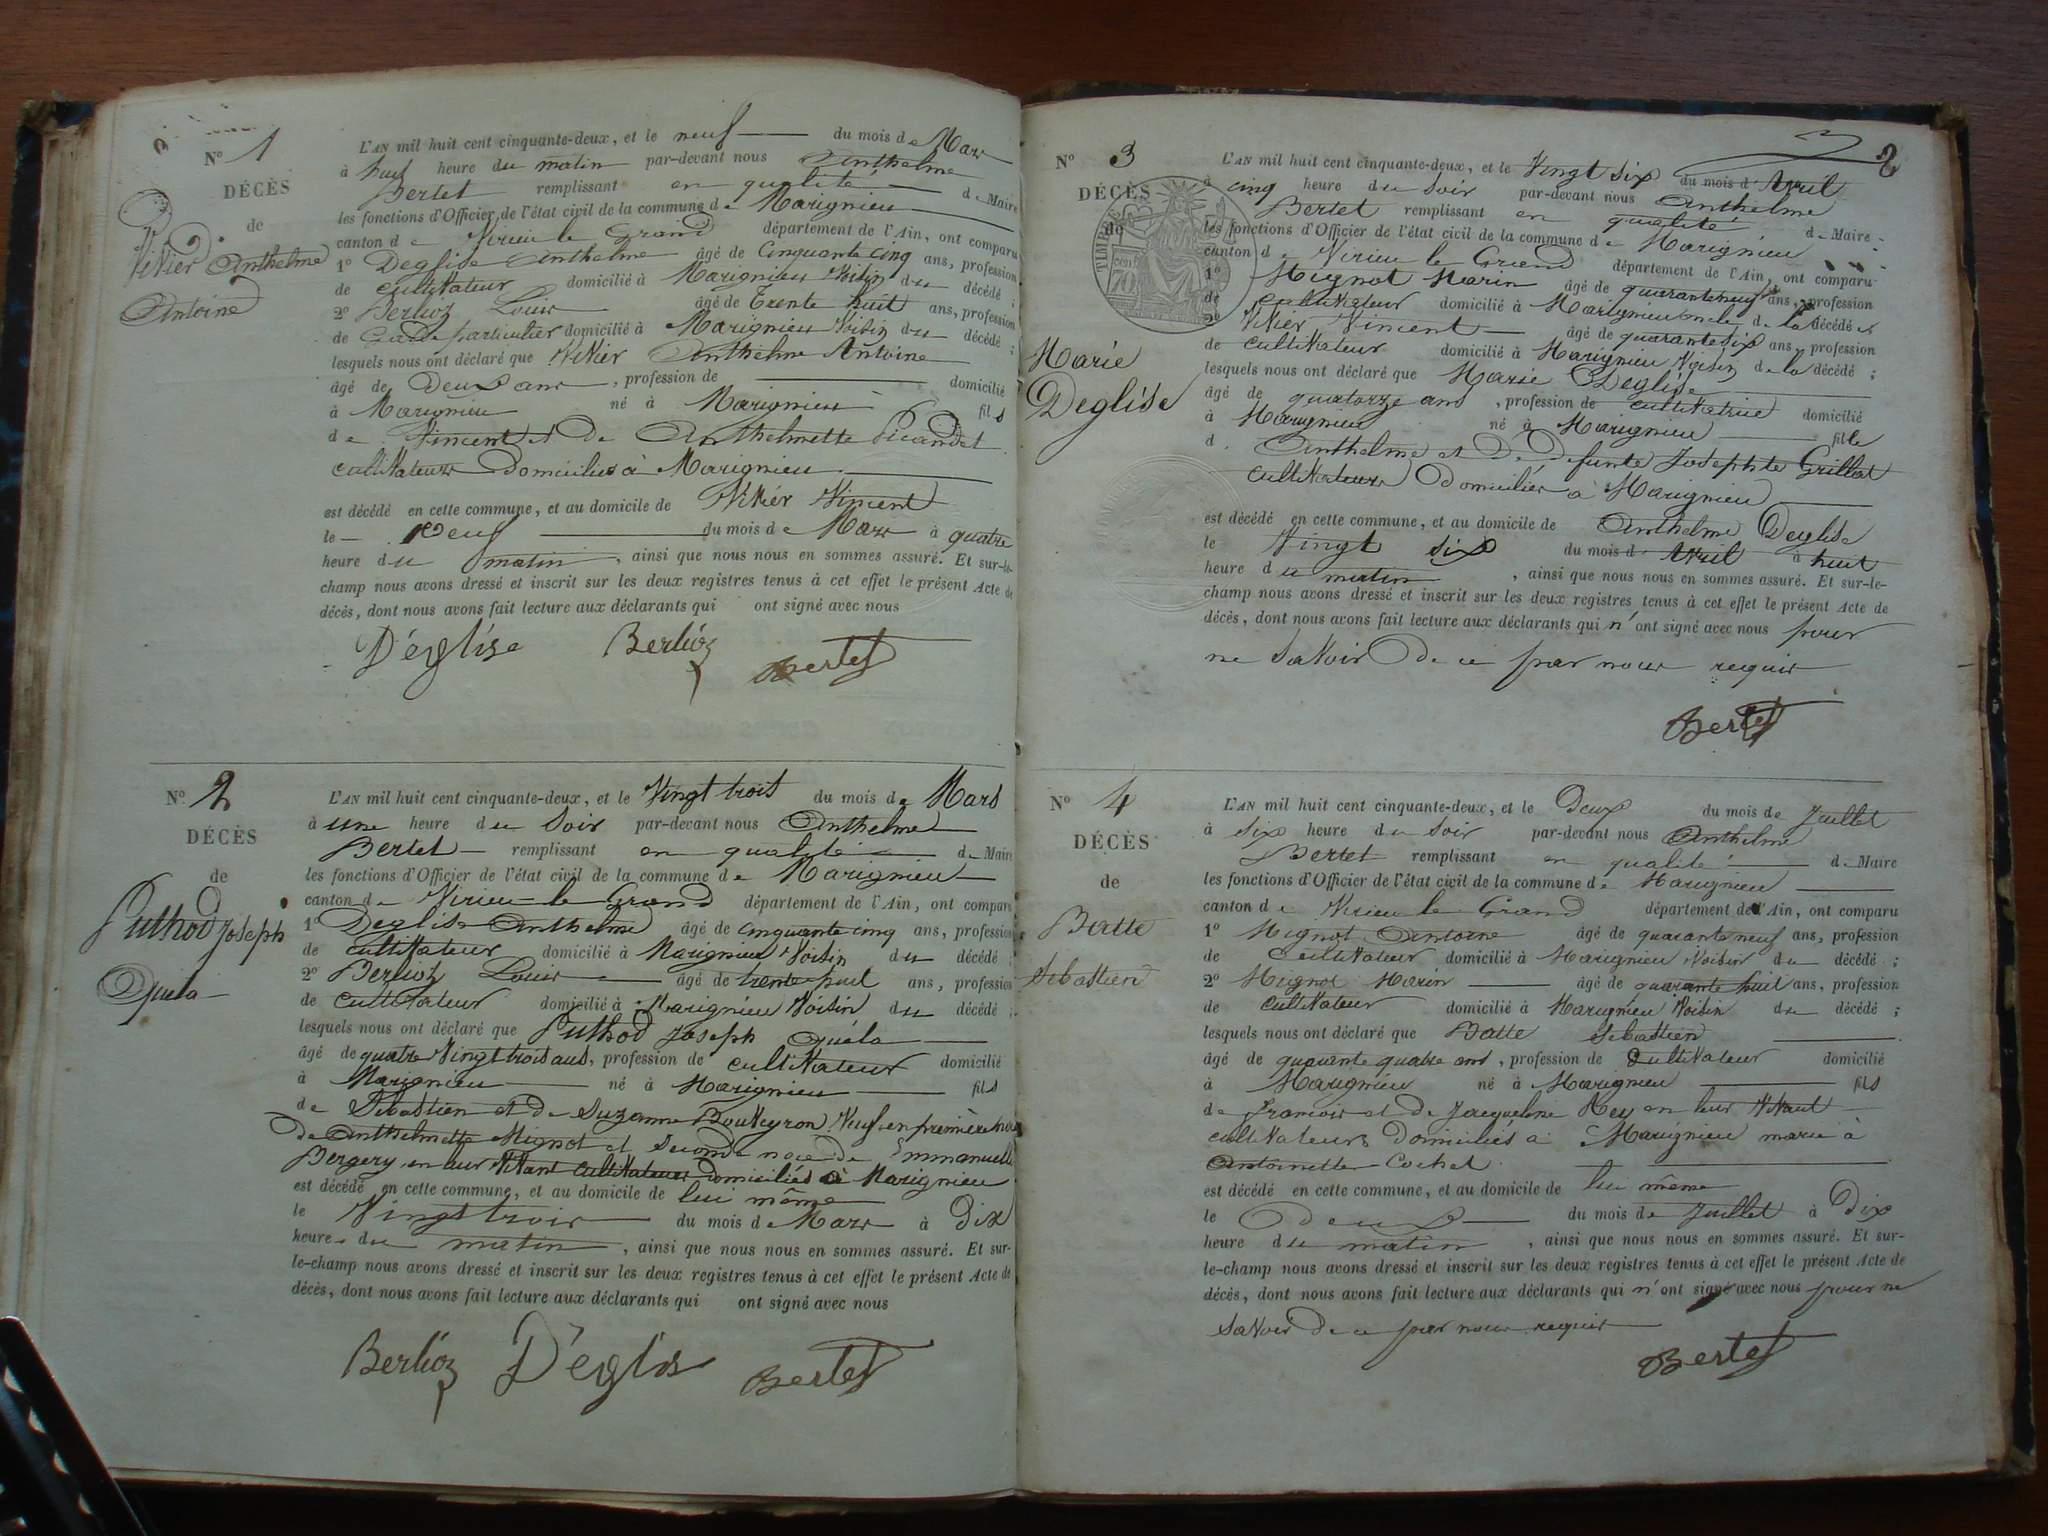 N° 1
DÉCÈS
de
Vivier Anthelme
Antoine
L'AN mil huit cent cinquante-deux, et le neuf du mois de Mars
à huit heure du matin par-devant nous Anthelme
Bertet remplissant en qualité de Maire
les fonctions d'Officier de l'état civil de la commune de Marignieu
canton de Virieu le Grand département de l'Ain, ont comparu
1° Deglise Anthelme âgé de Cinquante cinq ans, profession
de cultivateur domicilié à Marignieu Voisin du décédé ;
2° Berlioz Louis âgé de Trente huit ans, profession
de Garde particulier domicilié à Marignieu Voisin du décédé ;
lesquels nous ont déclaré que Vivier Anthelme Antoine
âgé de Deux ans, profession de domicilié
à Marignieu né à Marignieu fils
de Vincent et de Anthelmette Picandet
cultivateurs Domiciliés à Marignieu
est décédé en cette commune, et au domicile de Vivier Vincent
le Neuf du mois de Mars à quatre
heure du matin, ainsi que nous nous en sommes assuré. Et sur-le-
champ nous avons dressé et inscrit sur les deux registres tenus à cet effet le présent Acte de
décès, dont nous avons fait lecture aux déclarants qui ont signé avec nous
D'églize Berlioz Bertet
N° 2
DÉCÈS
de
Puthod Joseph
L'AN mil huit cent cinquante-deux, et le Vingt trois du mois de Mars
à une heure du Soir par-devant nous Anthelme
Bertet remplissant en qualité de Maire
les fonctions d'Officier de l'état civil de la commune de Marignieu
canton de Virieu le Grand département de l'Ain, ont comparu
1° Deglise Anthelme âgé de cinquante cinq ans, profession
de cultivateur domicilié à Marignieu Voisin du décédé ;
2° Berlioz Louis âgé de trente huit ans, profession
de cultivateur domicilié à Marignieu Voisin du décédé ;
lesquels nous ont déclaré que Puthod Joseph
âgé de quatre Vingt trois ans, profession de cultivateur domicilié
à Marignieu né à Marignieu fils
de Sébastien et de Suzanne Bouveyron Veuf en première noce
De Anthelmette Mignot et Seconde noce de Emmanuelle
Bergery en leur Vivant cultivateurs domiciliés à Marignieu
est décédé en cette commune, et au domicile de lui même
le Vingt trois du mois de Mars à Dix
heure du matin, ainsi que nous nous en sommes assuré. Et sur-
le-champ nous avons dressé et inscrit sur les deux registres tenus à cet effet le présent Acte de
décès, dont nous avons fait lecture aux déclarants qui ont signé avec nous
Berlioz D'églis Bertet
2
N° 3
DÉCÈS
de
TIMBRE
70
Marie
Deglise
L'AN mil huit cent cinquante-deux, et le Vingt six du mois d'Avril
à cinq heure du Soir par-devant nous Anthelme
Bertet remplissant en qualité de Maire
les fonctions d'Officier de l'état civil de la commune de Marignieu
canton de Virieu le Grand département de l'Ain, ont comparu
1° Mignot Marin âgé de quarante neuf ans, profession
de cultivateur domicilié à Marignieu oncle de la décédée
2° Vivier Vincent âgé de quarante six ans, profession
de cultivateur domicilié à Marignieu Voisin de la décédé ;
lesquels nous ont déclaré que Marie Deglise
âgé de quatorze ans, profession de cultivatrice domicilié
à Marignieu né à Marignieu fille
d'Anthelme et de Défunte Josephte Grillat
cultivateurs Domiciliés à Marignieu
est décédé en cette commune, et au domicile de Anthelme Deglise
le Vingt six du mois d'Avril à huit
heure du matin, ainsi que nous nous en sommes assuré. Et sur-le-
champ nous avons dressé et inscrit sur les deux registres tenus à cet effet le présent Acte de
décès, dont nous avons fait lecture aux déclarants qui n'ont signé avec nous pour
ne Savoir De ce par nous requis
Bertet
N° 4
DÉCÈS
de
Batte
Sebastien
L'AN mil huit cent cinquante-deux, et le Deux du mois de Juillet
à Six heure du Soir par-devant nous Anthelme
Bertet remplissant en qualité de Maire
les fonctions d'Officier de l'état civil de la commune de Marignieu
canton de Virieu le Grand département de l'Ain, ont comparu
1° Mignot Antoine âgé de quarante neuf ans, profession
de Cultivateur domicilié à Marignieu Voisin du décédé ;
2° Mignot Marin âgé de quarante huit ans, profession
de Cultivateur domicilié à Marignieu Voisin du décédé ;
lesquels nous ont déclaré que Batte Sebastien
âgé de quarante quatre ans, profession de Cultivateur domicilié
à Marignieu né à Marignieu fils
de francois et de Jacqueline Rey en leur Vivant
cultivateurs Domiciliés à Marignieu marié à
Antoinette Cochet
est décédé en cette commune, et au domicile de lui même
le Deux du mois de Juillet à Dix
heure du matin, ainsi que nous nous en sommes assuré. Et sur-
le-champ nous avons dressé et inscrit sur les deux registres tenus à cet effet le présent Acte de
décès, dont nous avons fait lecture aux déclarants qui n'ont signé avec nous pour ne
Savoir De ce par nous requis
Bertet